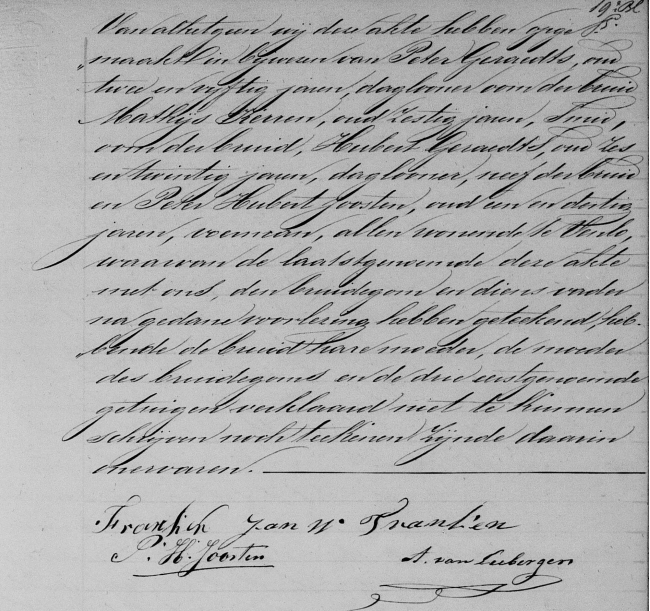 19e Bl
Van al hetgeen wij deze akte hebben opge
„maakt in bijwezen van Peter Geraedts, oud
twee en vijftig jaren, daglooner oom der bruid
Mathijs Kerren, oud zestig jaren, Smid,
oom der bruid, Hubert Geraedts, oud zes
en twintig jaren, daglooner, neef der bruid
en Peter Hubert Joosten, oud een en dertig
jaren, voerman, allen wonende te Venlo,
waarvan de laatstgenoemde deze akte
met ons, den bruidegom en diens vader
na gedane voorlezing hebben geteekend, heb-
„bende de bruid hare moeder, de moeder
des bruidegoms en de drie eerstgenoemde
getuigen verklaard niet te kunnen
schrijven noch teekenen zijnde daarin
onervaren.
Jan Franken
P. H. Joosten